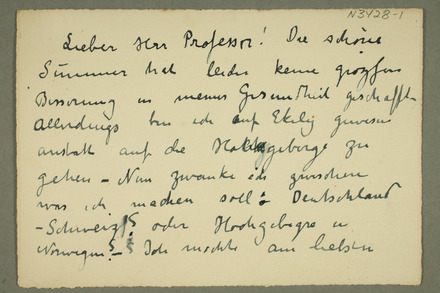 N3428-1
Lieber Herr Professor! Die schöne
Summer hat leider keine grossen
Besserung in meiner Gesundheit geschafft.
Allerdings bin ich auf Ekelig gewesen
anstatt auf die Hochgebirge zu
gehen - Nun zwanke ich zwischen
was ich machen soll: Deutschland
- Schweiz!? oder Hochgebirge in
Norwegen? - Ich mochte am liebsten